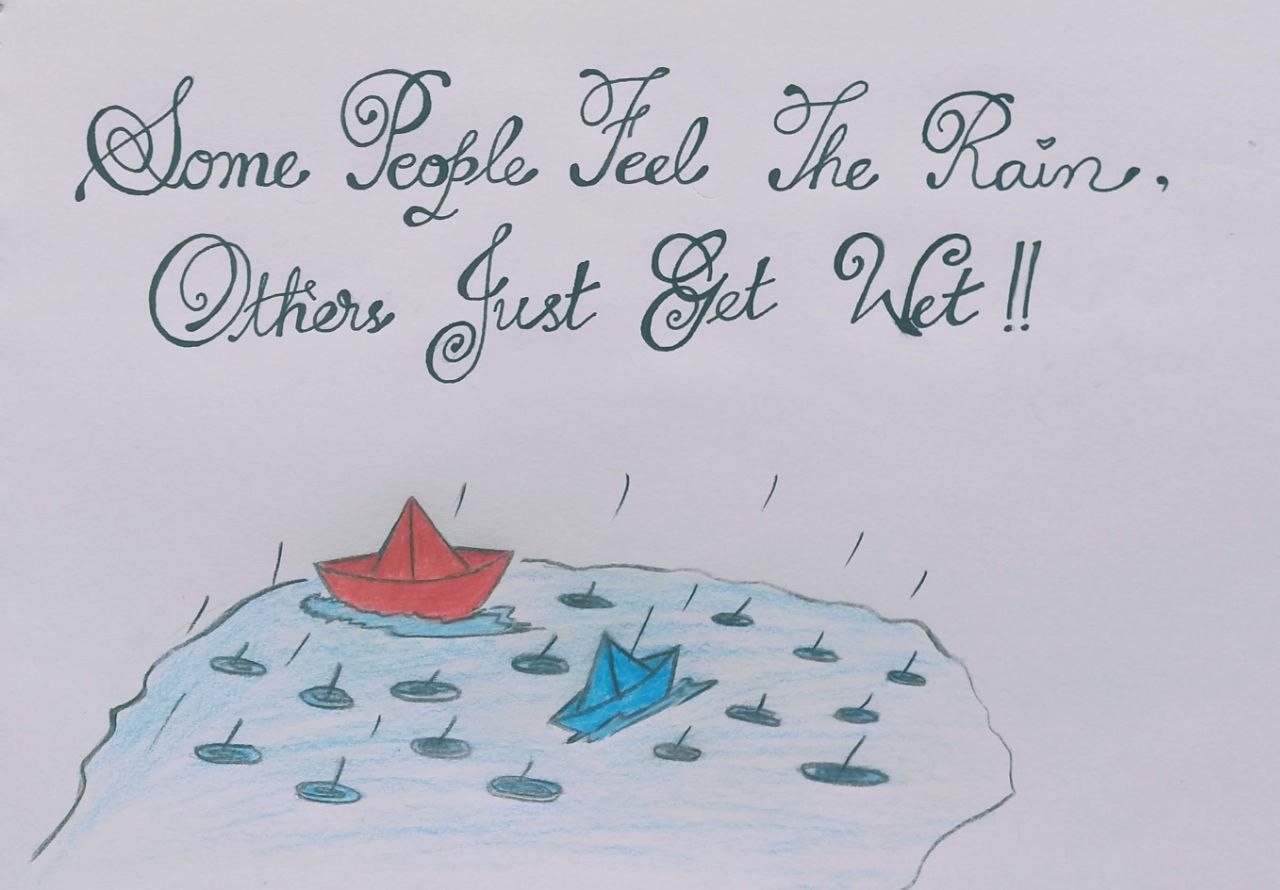 Some People Feel The Rain,
Others Just Get Wet!!